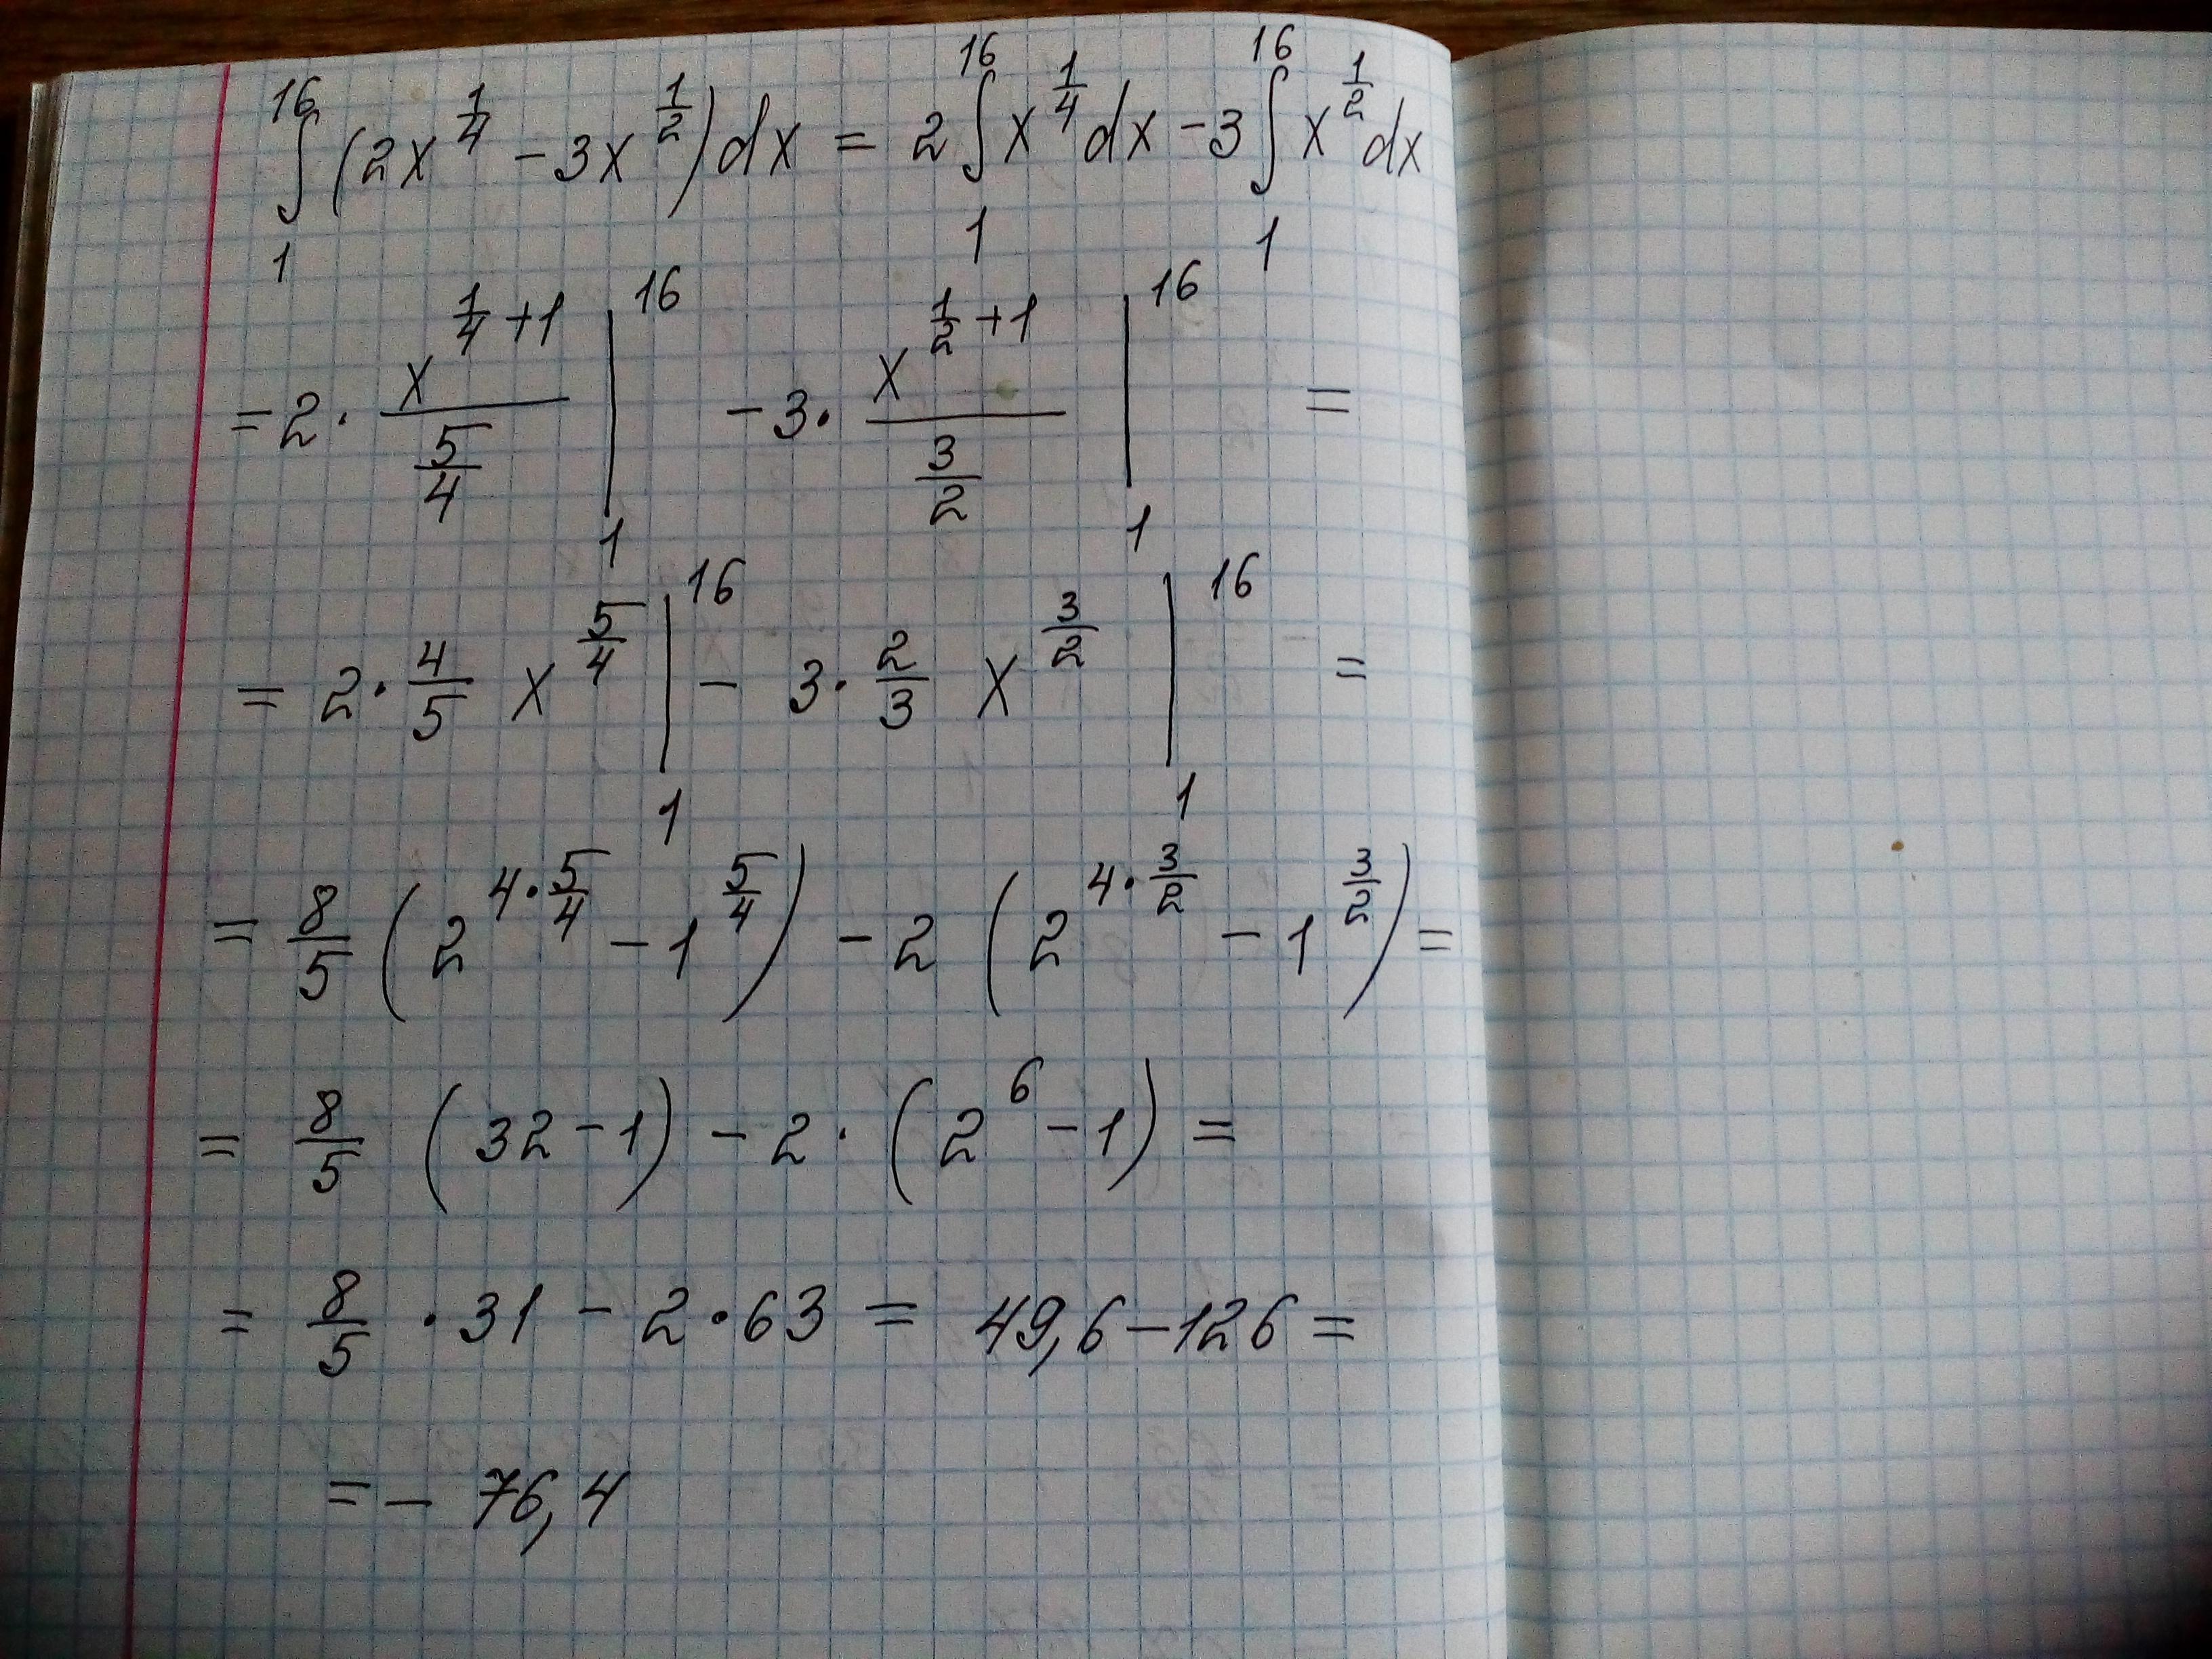 ∫₁¹⁶ (2x^(1/4) - 3x^(1/2)) dx = 2 ∫₁¹⁶ x^(1/4) dx - 3 ∫₁¹⁶ x^(1/2) dx
= 2 · x^(1/4 + 1) / (5/4) |₁¹⁶ - 3 · x^(1/2 + 1) / (3/2) |₁¹⁶ =
= 2 · 4/5 x^(5/4) |₁¹⁶ - 3 · 2/3 x^(3/2) |₁¹⁶ =
= 8/5 (2^(4 · 5/4) - 1^(5/4)) - 2 (2^(4 · 3/2) - 1^(3/2)) =
= 8/5 (32 - 1) - 2 · (2^6 - 1) =
= 8/5 · 31 - 2 · 63 = 49,6 - 126 =
= - 76,4